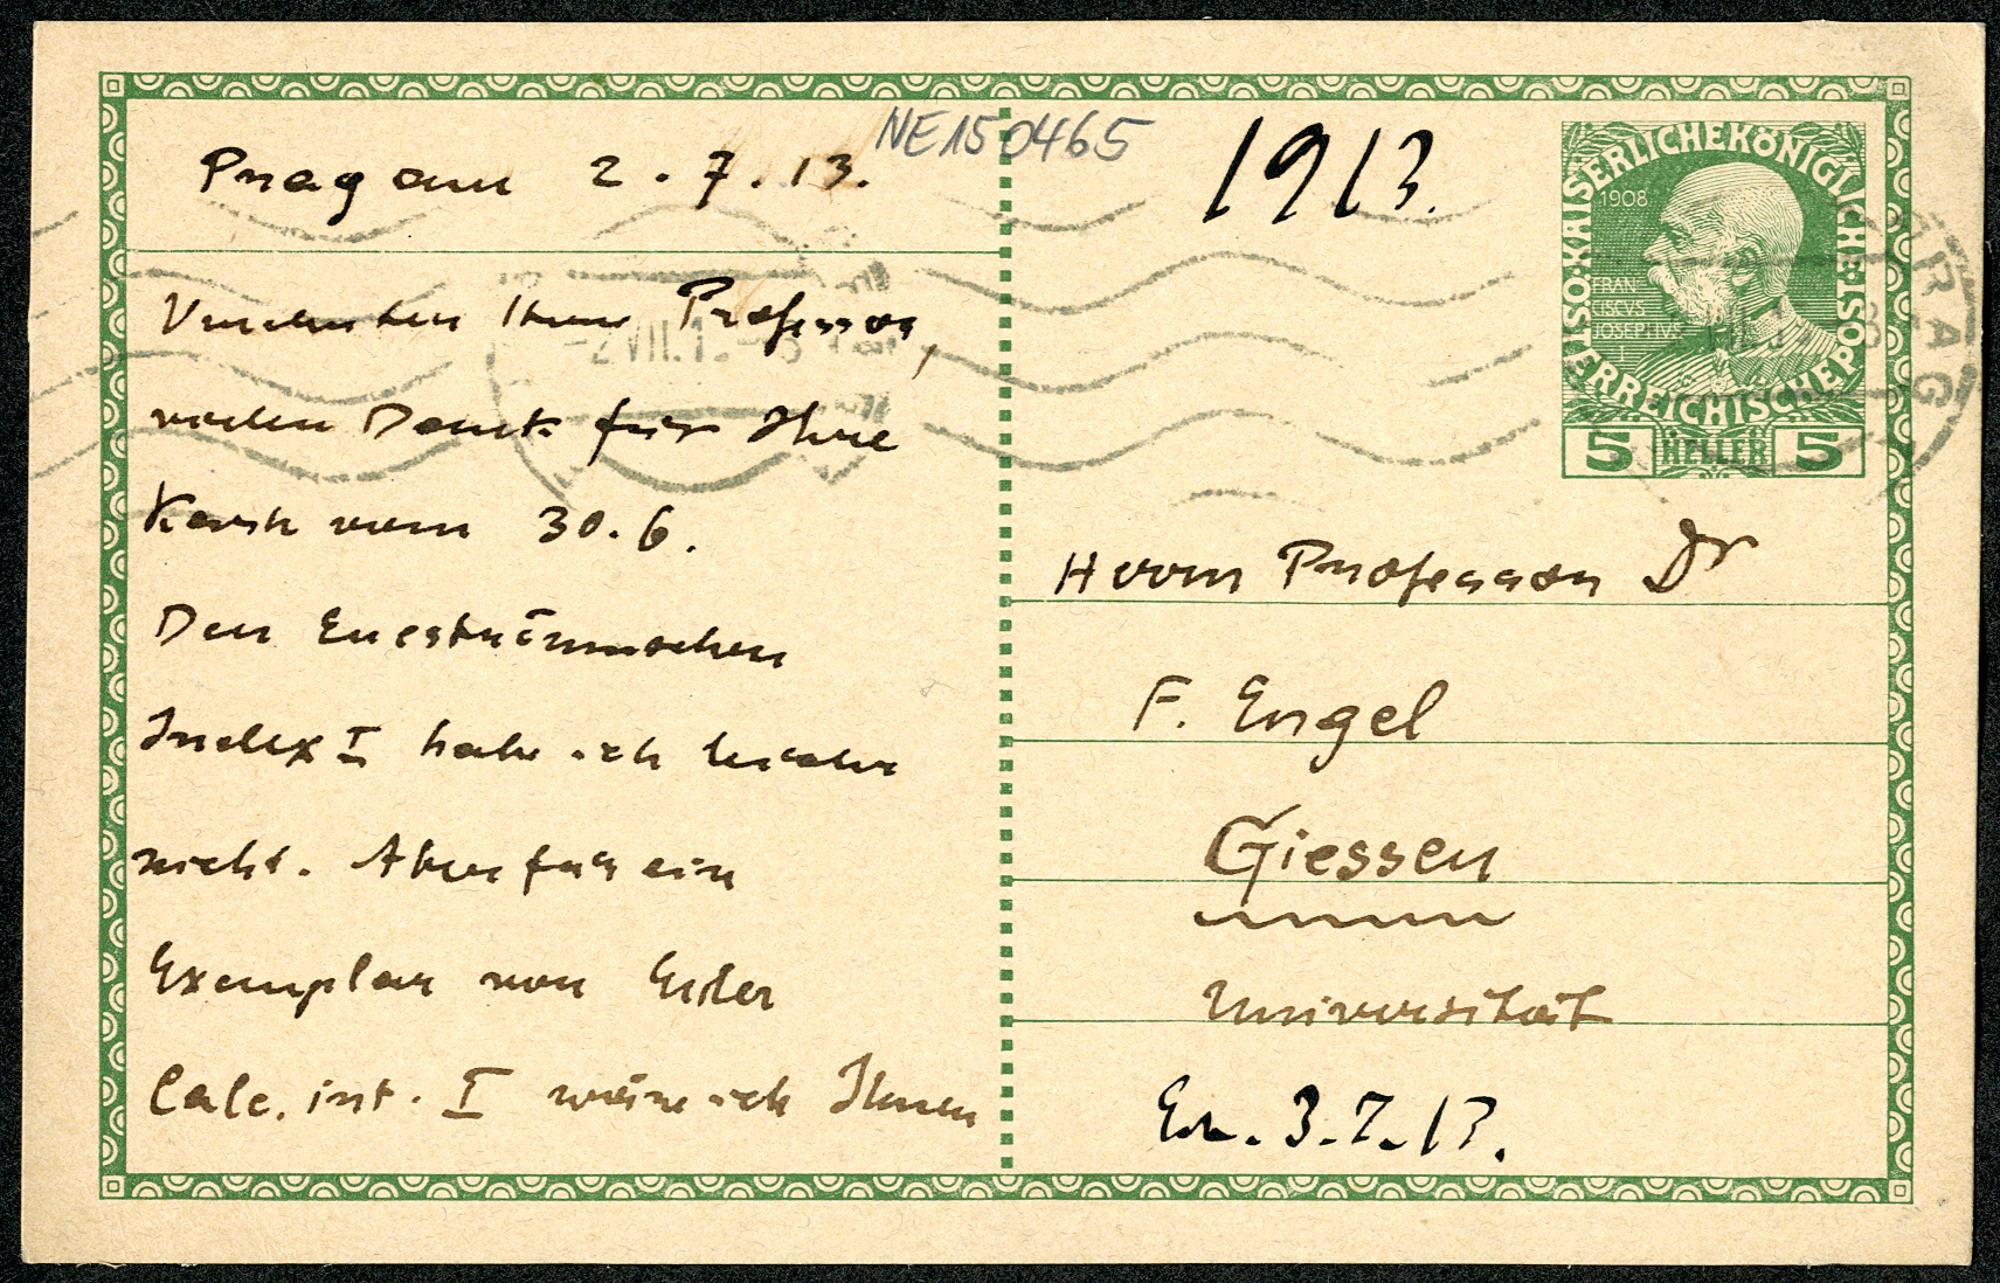 Prag am 2.7.13.
NE150465
Verehrter Herr Professor,
vielen Dank für Ihre
Karte vom 30.6.
Den Eneströmschen
Index I habe ich leider
nicht. Aber für ein
Exemplar von Euler
Calc. int. I wäre ich Ihnen
1913.
KAISERLICHEKÖNIGLICHE
ÖSTERREICHISCHEPOST
1908
FRAN
CISCVS
IOSEPHVS
I
5 HELLER 5
PRAG
-2VII.1
Herrn Professor Dr
F. Engel
Giessen
Universität
3.7.13.